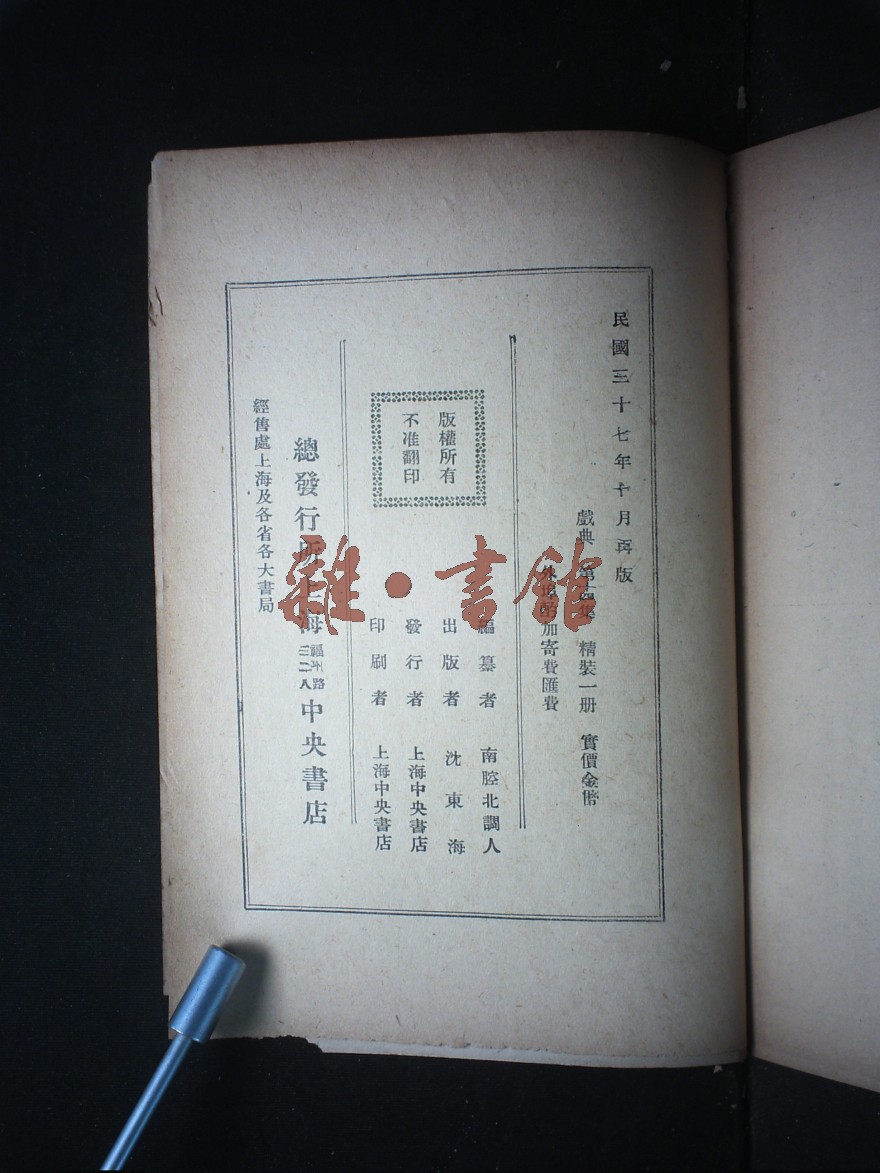 民國三十七年十月再版
戲典 第十四集 精裝一册 實價金幣
外埠酌加寄費匯費
編纂者 南腔北調人
出版者 沈東海
發行者 上海中央書店
印刷者 上海中央書店
版權所有
不准翻印
總發行所上海 路 中央書店
經售處上海及各省各大書局
雜·書館